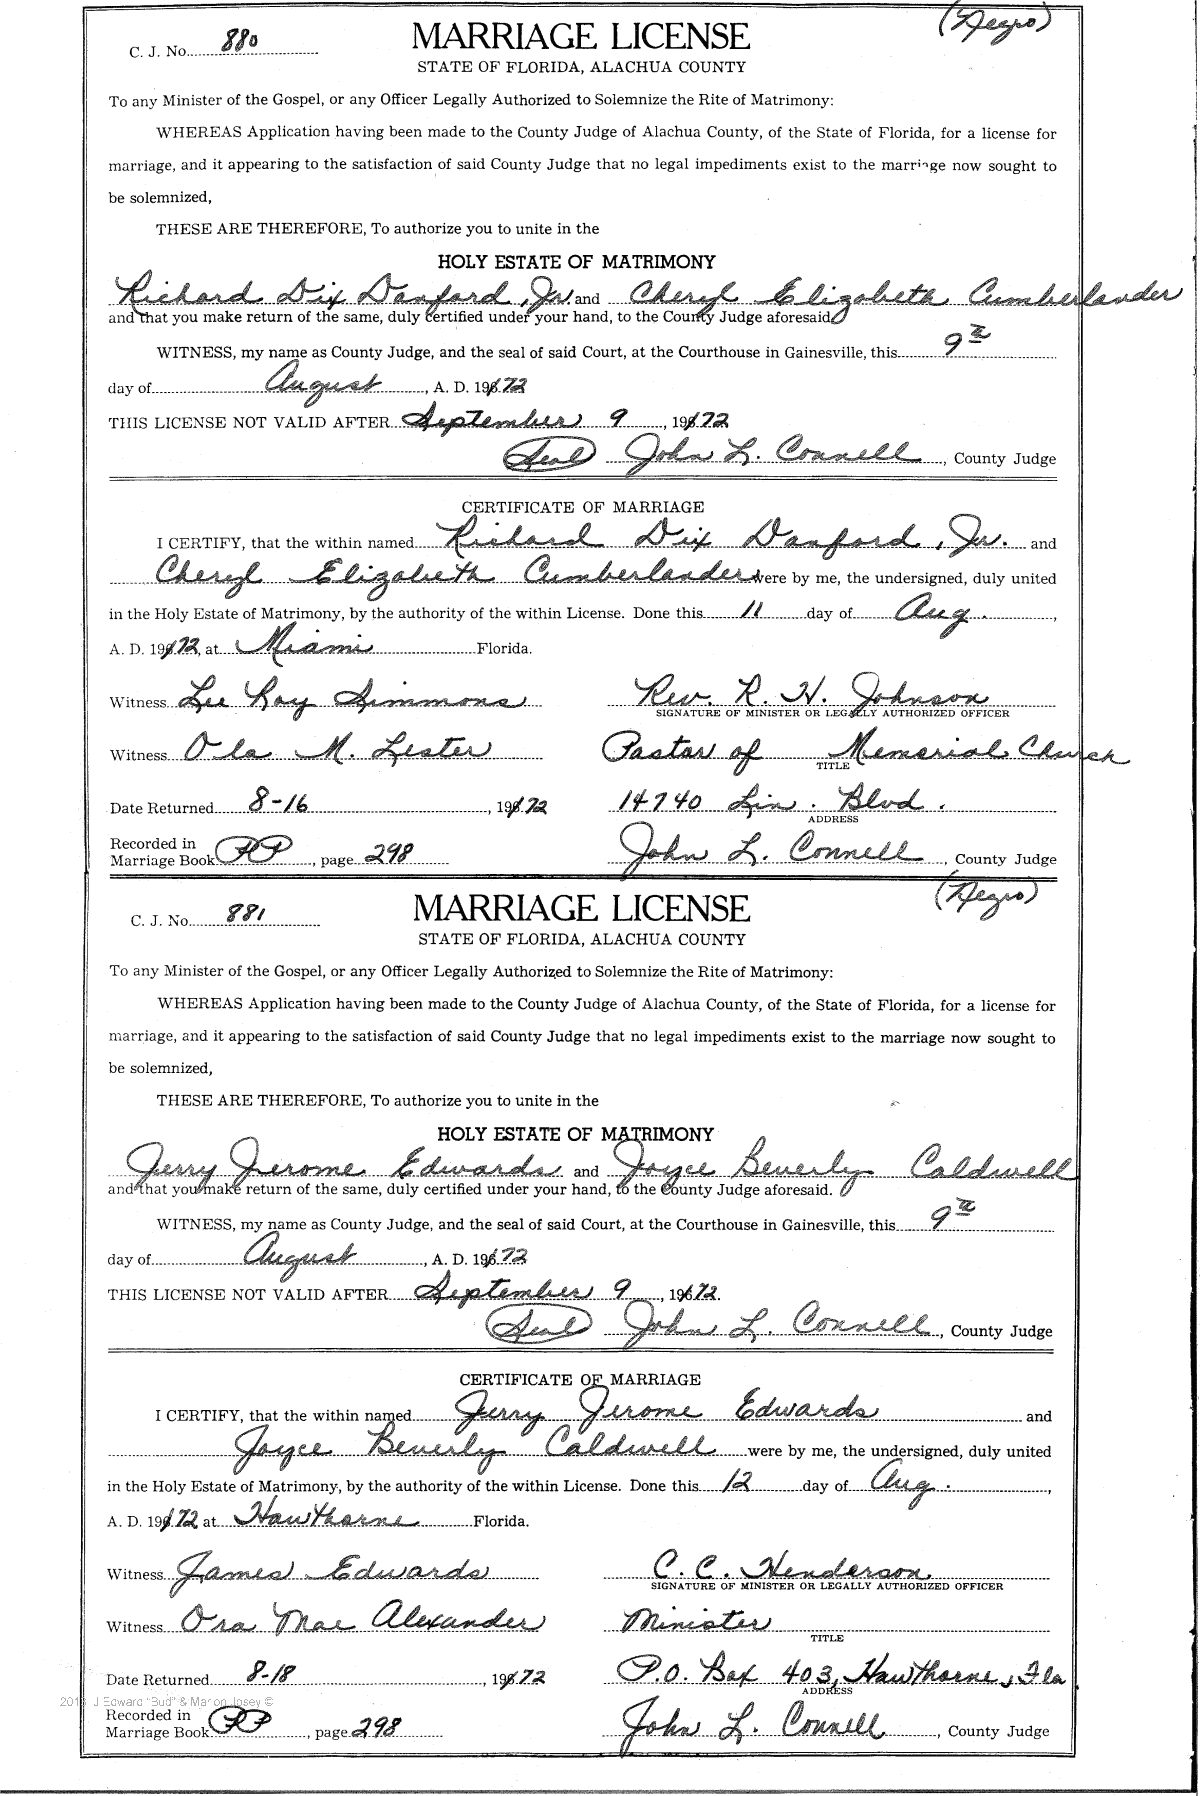 (Negro)
C. J. No. 880 MARRIAGE LICENSE
STATE OF FLORIDA, ALACHUA COUNTY
To any Minister of the Gospel, or any Officer Legally Authorized to Solemnize the Rite of Matrimony:
WHEREAS Application having been made to the County Judge of Alachua County, of the State of Florida, for a license for
marriage, and it appearing to the satisfaction of said County Judge that no legal impediments exist to the marriage now sought to
be solemnized,
THESE ARE THEREFORE, To authorize you to unite in the
HOLY ESTATE OF MATRIMONY
Richard Dix Danford, Jr. and Cheryl Elizabeth Cumberlander
and that you make return of the same, duly certified under your hand, to the County Judge aforesaid.
WITNESS, my name as County Judge, and the seal of said Court, at the Courthouse in Gainesville, this 9th
day of August, A. D. 1972
THIS LICENSE NOT VALID AFTER September 9, 1972
Seal John L. Connell, County Judge
CERTIFICATE OF MARRIAGE
I CERTIFY, that the within named Richard Dix Danford, Jr. and
Cheryl Elizabeth Cumberlander were by me, the undersigned, duly united
in the Holy Estate of Matrimony, by the authority of the within License. Done this 11 day of Aug.,
A. D. 1972, at Miami Florida.
Witness Lee Roy Simmons Rev. R. H. Johnson
SIGNATURE OF MINISTER OR LEGALLY AUTHORIZED OFFICER
Witness Ola M. Lester Pastor of Memorial Church
TITLE
Date Returned 8-16, 1972 14740 Lin. Blvd.
ADDRESS
Recorded in
Marriage Book PP, page 298 John L. Connell, County Judge
(Negro)
C. J. No. 881 MARRIAGE LICENSE
STATE OF FLORIDA, ALACHUA COUNTY
To any Minister of the Gospel, or any Officer Legally Authorized to Solemnize the Rite of Matrimony:
WHEREAS Application having been made to the County Judge of Alachua County, of the State of Florida, for a license for
marriage, and it appearing to the satisfaction of said County Judge that no legal impediments exist to the marriage now sought to
be solemnized,
THESE ARE THEREFORE, To authorize you to unite in the
HOLY ESTATE OF MATRIMONY
Jerry Jerome Edwards and Joyce Beverly Caldwell
and that you make return of the same, duly certified under your hand, to the County Judge aforesaid.
WITNESS, my name as County Judge, and the seal of said Court, at the Courthouse in Gainesville, this 9th
day of August, A. D. 1972
THIS LICENSE NOT VALID AFTER September 9, 1972.
Seal John L. Connell, County Judge
CERTIFICATE OF MARRIAGE
I CERTIFY, that the within named Jerry Jerome Edwards and
Joyce Beverly Caldwell were by me, the undersigned, duly united
in the Holy Estate of Matrimony, by the authority of the within License. Done this 12 day of Aug.,
A. D. 1972 at Hawthorne Florida.
Witness James Edwards C. C. Henderson
SIGNATURE OF MINISTER OR LEGALLY AUTHORIZED OFFICER
Witness Ora Mae Alexander Minister
TITLE
Date Returned 8-18, 1972 P.O. Box 403, Hawthorne, Fla
ADDRESS
J Edward "Bud" & Marion Josey ©
Recorded in
Marriage Book PP, page 298 John L. Connell, County Judge